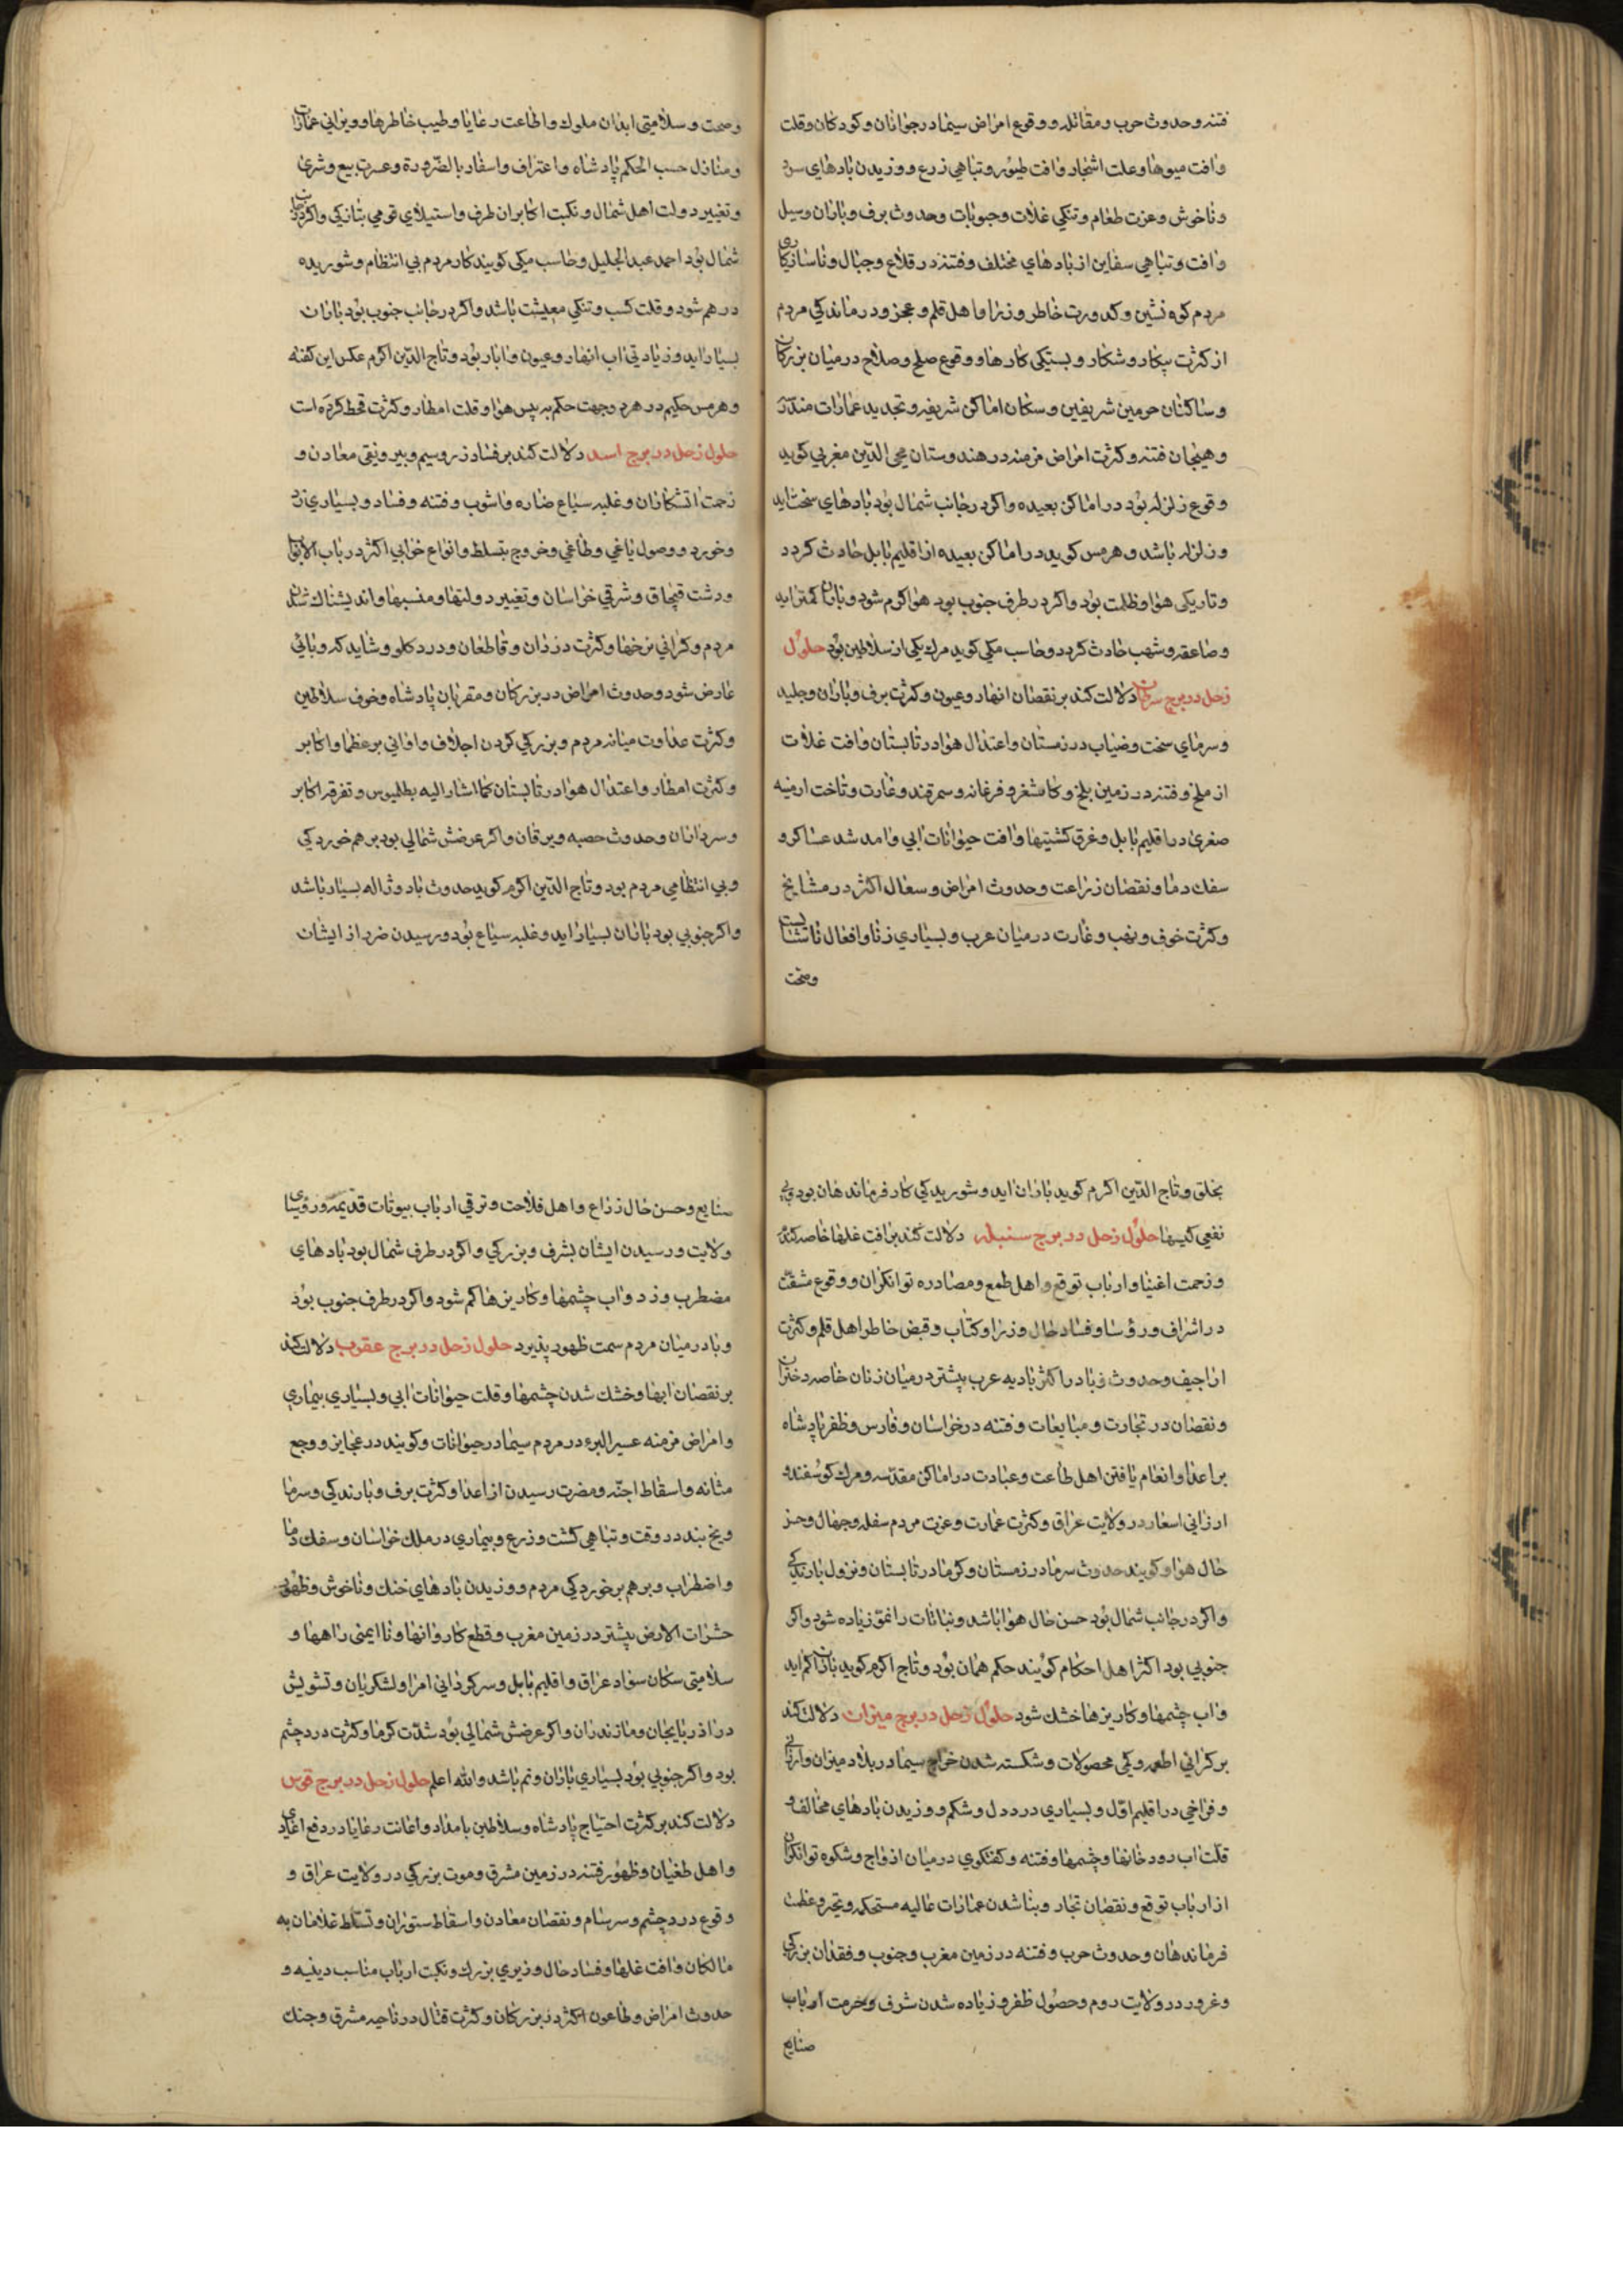 فتنه وحدوث حرب ومقاتله ووقوع امراض سیما در جوانان وکودکان وقلت
وافت میوها وعلت اشجار وافت طیور وتباهی زرع ووزیدن بادهای سرد
وناخوش وعزت طعام وتنکی غلات وحبوبات وحدوث برف وباران وسیل
وافت وتباهی سفاین از بادهای مختلف وفتنه در قلاع وجبال وناسازکاری
مردم کوه نشین وکدورت خاطر وزرا واهل قلم وعجز ودرماندکی مردم
از کثرت پیکار وشکار وبستکی کارها ووقوع صلح وصلاح در میان بزرکان
وساکنان حرمین شریفین وسکان اماکن شریفه وتجدید عمارات مندرّ
وهیجان فتنه وکثرت امراض مزمنه در هندوستان محی الدّین مغربی کوید
وقوع زلزله بود در اماکن بعیده واکر در جانب شمال بود بادهای سخت اید
وزلزله باشد وهرمس کوید در اماکن بعیده از اقلیم بابل حادث کردد
وتاریکی هوا وظلمت بود واکر در طرف جنوب بود هوا کرم شود وباران کمتر اید
وصاعقه وشهب حادث کردد وحاسب مکی کوید مرک یکی از سلاطین بود حلول
زحل در برج سرطان دلالت کند بر نقصان انهار وعیون وکثرت برف وباران وجلید
وسرمای سخت وضباب در زمستان واعتدال هوا در تابستان وافت غلات
از ملخ وفتنه در زمین بلخ وکاشغر وفرغانه وسمرقند وغارت وتاخت ارمنیه
صغری در اقلیم بابل وغرق کشتیها وافت حیوانات ابی وامد شد عساکر و
سفک دما ونقصان زراعت وحدوث امراض وسعال اکثر در مشایخ
وکثرت خوف ونهب وغارت در میان عرب وبسیاری زنا وافعال ناشایست
وصحت
وصحت وسلامتی ابدان ملوک واطاعت رعایا وطیب خاطرها وویرانی عمارات
ومنازل حسب الحکم پادشاه واعتراف واسفار بالضّرورة وعسرت بیع وشری
وتغییر دولت اهل شمال ونکبت اکابر ان طرف واستیلای قومی بتازکی واکر در جانب
شمال بود احمد عبد الجلیل وحاسب مکی کویند کار مردم بی انتظام وشوریده
درهم شود وقلت کسب وتنکی معیشت باشد واکر در جانب جنوب بود باران
بسیار اید وزیادتی اب انهار وعیون وابار بود وتاج الدّین اکرم عکس این کفته
وهرمس حکیم در هر دو جهت حکم به یبس هوا وقلت امطار وکثرت قحط کرده است
حلول زحل در برج اسد دلالت کند بر فساد زر وسیم وبی رونقی معادن و
زحمت اتشکاران وغلبه سباع ضاره واشوب وفتنه وفساد وبسیاری زد
وخورد ووصول یاغی وطاغی وخروج بتسلط وانواع خرابی اکثر در باب الابواب
ودشت قبچاق وشرقی خراسان وتغییر دولتها ومنصبها واندیشناک شدن
مردم وکرانی نرخها وکثرت دزدان وقاطعان ودرد کلو وشاید که وبائی
عارض شود وحدوث امراض در بزرکان ومقربان پادشاه وخوف سلاطین
وکثرت عداوت میانه مردم وبزرکی کردن اجلاف وادانی بر عظما واکابر
وکثرت امطار واعتدال هوا در تابستان کما اشار الیه بطلمیوس وتفرقه اکابر
وسرداران وحدوث حصبه ویرقان واکر عرضش شمالی بود برهم خوردکی
وبی انتظامی مردم بود وتاج الدّین اکرم کوید حدوث باد وژاله بسیار باشد
واکر جنوبی بود باران بسیار اید وغلبه سباع بود ورسیدن ضرر از ایشان
بخلق وتاج الدّین اکرم کوید باران اید وشوریدکی کار فرماندهان بود وبی
نفعی کسبها حلول زحل در برج سنبله دلالت کند بر افت غلها خاصه کندم
وزحمت اغنیا وارباب توقع واهل طمع ومصادره توانکران ووقوع مشقت
در اشراف ورؤسا وفساد حال وزرا وکتاب وقبض خاطر اهل قلم وکثرت
اراجیف وحدوث وبا در اکثر بادیه عرب بیشتر در میان زنان خاصه دختران
ونقصان در تجارت ومبایعات وفتنه در خراسان وفارس وظفر پادشاه
بر اعدا وانعام یافتن اهل طاعت وعبادت در اماکن مقدّسه ومرک کوسفند و
ارزانی اسعار در ولایت عراق وکثرت عمارت وعزت مردم سفله وجهال وحسن
حال هوا وکویند حدوث سرما در زمستان وکرما در تابستان ونزول بارندکی
واکر در جانب شمال بود حسن حال هوا باشد ونباتات را نموّ زیاده شود واکر
جنوبی بود اکثر اهل احکام کویند حکم همان بود وتاج اکرم کوید باران کم اید
واب چشمها وکاریزها خشک شود حلول زحل در برج میزان دلالت کند
بر کرانی اطعمه وکمی محصولات وشکسته شدن خراج سیما در بلاد میزان وارزانی
وفراخی در اقلیم اوّل وبسیاری درد دل وشکم ووزیدن بادهای مخالف و
قلت اب رودخانها وچشمها وفتنه وکفتکوی در میان ازواج وشکوه توانکران
از ارباب توقع ونقصان تجار وبنا شدن عمارات عالیه مستحکم وتجبر وعظمت
فرماندهان وحدوث حرب وفتنه در زمین مغرب وجنوب وفقدان بزرکی
وغرور در ولایت روم وحصول ظفر وزیاده شدن شرف وحرمت ارباب
صنایع
صنایع وحسن حال زراع واهل فلاحت وترقی ارباب بیوتات قدیمه ورؤسای
ولایت ورسیدن ایشان بشرف وبزرکی واکر در طرف شمال بود بادهای
مضطرب وزد واب چشمها وکاریزها کم شود واکر در طرف جنوب بود
وبا در میان مردم سمت ظهور پذیرد حلول زحل در برج عقرب دلالت کند
بر نقصان ابها وخشک شدن چشمها وقلت حیوانات ابی وبسیاری بیماری
وامراض مزمنه عسیر البرء در مردم سیما در حیوانات وکویند در عجایز ووجع
مثانه واسقاط اجنّه ومضرت رسیدن از اعدا وکثرت برف وبارندکی وسرما
ویخ بند در وقت وتباهی کشت وزرع وبیماری در ملک خراسان وسفک دما
واضطراب وبرهم برخوردکی مردم ووزیدن بادهای خنک وناخوش وظهور
حشرات الارض بیشتر در زمین مغرب وقطع کاروانها ونا ایمنی راهها و
سلامتی سکان سواد عراق واقلیم بابل وسرکردانی امرا ولشکریان وتشویش
در اذربایجان ومازندران واکر عرضش شمالی بود شدّت کرما وکثرت درد چشم
بود واکر جنوبی بود بسیاری باران ونم باشد والله اعلم حلول زحل در برج قوس
دلالت کند بر کثرت احتیاج پادشاه وسلاطین بامداد واعانت رعایا در دفع اعادی
واهل طغیان وظهور فتنه در زمین مشرق وموت بزرکی در ولایت عراق و
وقوع درد چشم وسرسام ونقصان معادن واسقاط ستوران وتسلط غلامان به
مالکان وافت غلها وفساد حال وزیری بزرک ونکبت ارباب مناسب دینیه و
حدوث امراض وطاعون اکثر در بزرکان وکثرت قتال در ناحیه مشرق وجنک